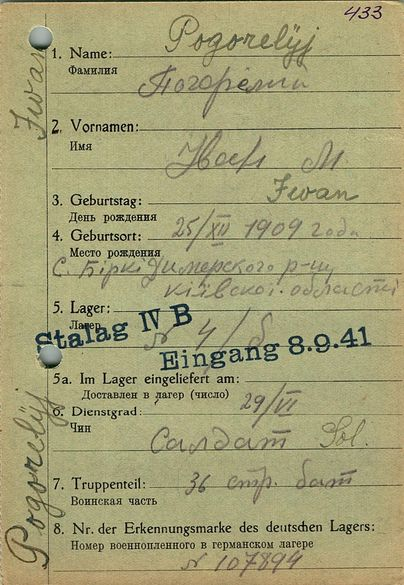 433
Pogorelÿj
1. Name:
Фамилия
Погорелий
2. Vornamen:
Имя
Иван М
Iwan
3. Geburtstag:
День рождения
25/XII 1909 года
4. Geburtsort:
Место рождения
с. Біркі Димерского р-ну
київскої області
5. Lager:
Лагер
N 4/б
Stalag IV B
Eingang 8.9.41
5a. Im Lager eingeliefert am:
Доставлен в лагер (число)
29/VI
6. Dienstgrad:
Чин
Салдат Sol.
7. Truppenteil:
Воинская часть
36 стр. бат
8. Nr. der Erkennungsmarke des deutschen Lagers:
Номер военнопленного в германском лагере
N 107894
Iwan
Pogorelÿj